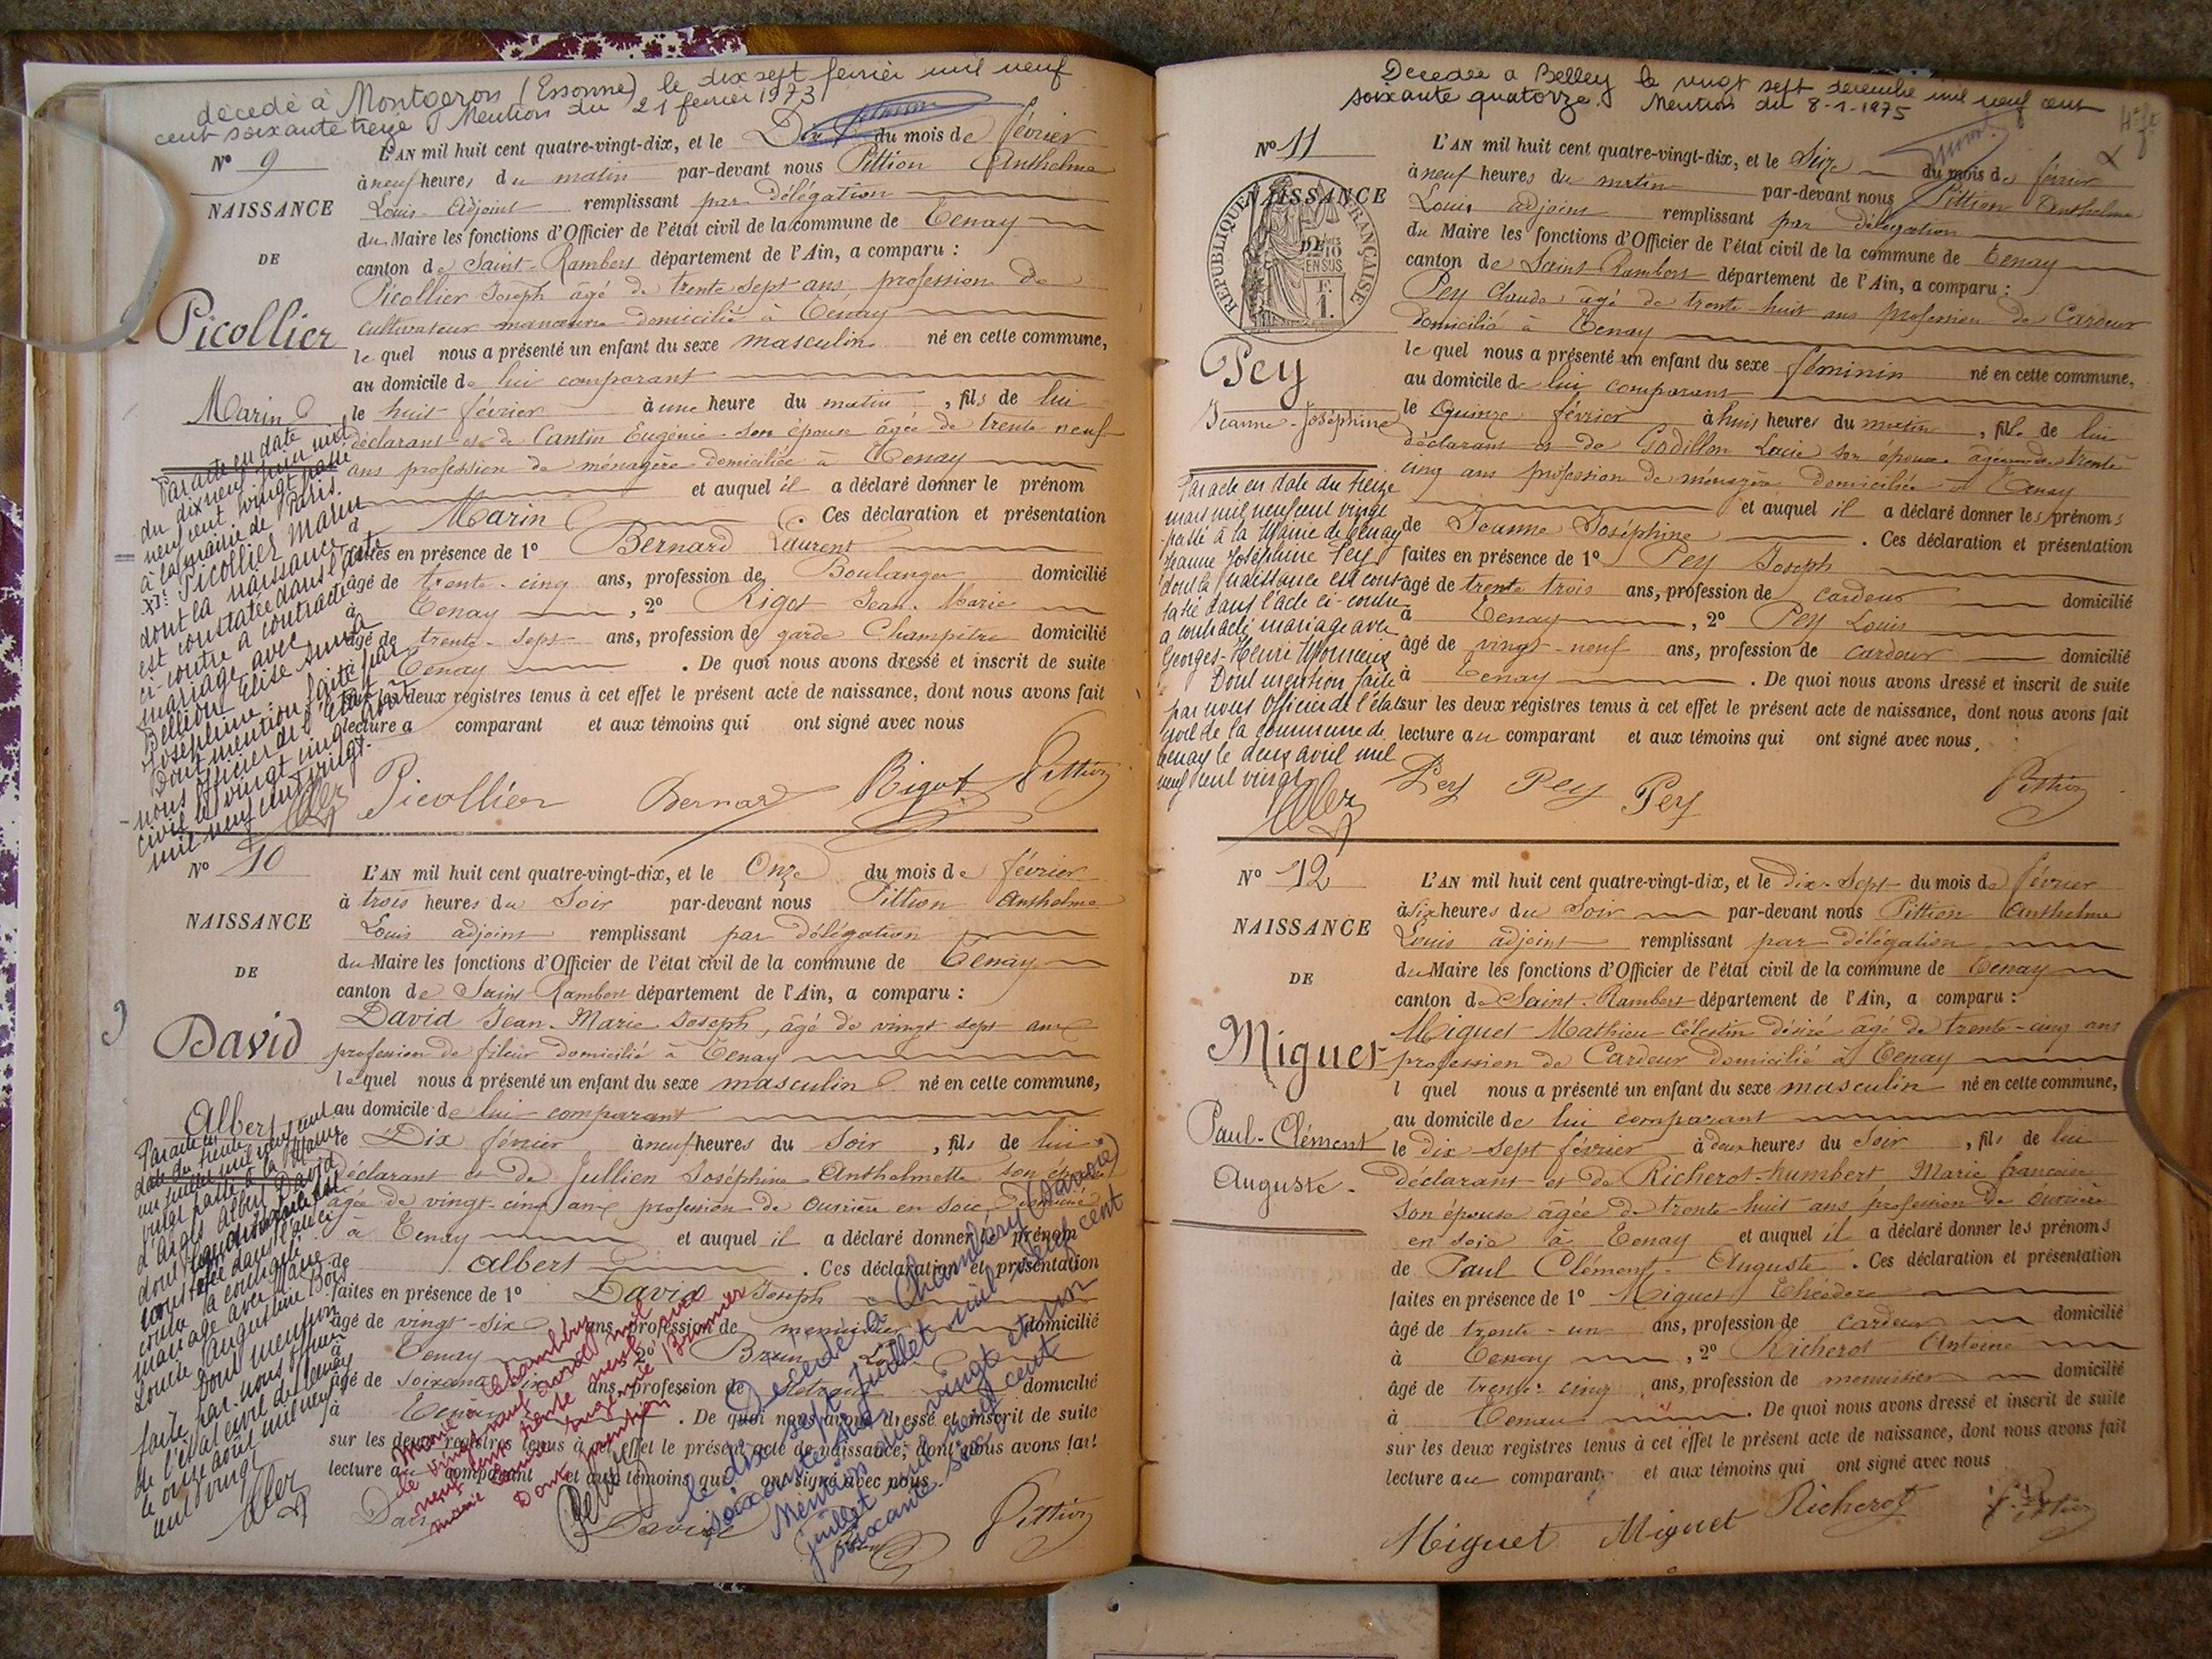 decedé à Montgeron (Essonne) le dix sept fevrier mil neuf
cent soixante treize Mention du 21 fevrier 1973
N° 9
NAISSANCE
DE
Picollier
Marin
L'AN mil huit cent quatre-vingt-dix, et le Dix du mois de février
à neuf heures du matin par-devant nous Pittion Anthelme
Louis Adjoint remplissant par délégation
du Maire les fonctions d'Officier de l'état civil de la commune de Tenay
canton de Saint-Rambert département de l'Ain, a comparu :
Picollier Joseph âgé de trente sept ans profession de
cultivateur manœuvre domicilié à Tenay
le quel nous a présenté un enfant du sexe masculin né en cette commune,
au domicile de lui comparant
le huit février à une heure du matin, fils de lui
déclarant et de Cantin Eugénie son épouse âgée de trente neuf
ans profession de ménagère domiciliée à Tenay
et auquel il a déclaré donner le prénom
d Marin . Ces déclaration et présentation
faites en présence de 1° Bernard Laurent
âgé de trente-cinq ans, profession de Boulanger domicilié
à Tenay , 2° Rigot Jean-Marie
âgé de trente-sept ans, profession de garde Champêtre domicilié
Tenay . De quoi nous avons dressé et inscrit de suite
sur les deux registres tenus à cet effet le présent acte de naissance, dont nous avons fait
lecture a comparant et aux témoins qui ont signé avec nous
Picollier Bernard Rigot Pittion
Par acte en date
du dix neuf juin mil
neuf cent vingt passé
à la mairie de Paris
XIe Picollier Marin
dont la naissance
est constatée dans l'acte
ci-contre a contracté
mariage avec
Josephine
Dont mention faite par
nous officier de l'état
civil le vingt cinq
mil neuf cent vingt.
N° 10
NAISSANCE
DE
David
Albert
L'AN mil huit cent quatre-vingt-dix, et le Onze du mois de février
à trois heures du Soir par-devant nous Pittion Anthelme
Louis adjoint remplissant par délégation
du Maire les fonctions d'Officier de l'état civil de la commune de Tenay
canton de Saint-Rambert département de l'Ain, a comparu :
David Jean-Marie-Joseph, âgé de vingt sept ans
profession de fileur domicilié à Tenay
le quel nous a présenté un enfant du sexe masculin né en cette commune,
au domicile de lui comparant
le Dix février à neuf heures du Soir , fils de lui
déclarant et de Jullien Joséphine Anthelmette son épouse
âgée de vingt-cinq ans profession de ouvrière en soie domiciliée
à Tenay et auquel il a déclaré donner le prénom
de Albert . Ces déclaration et présentation
faites en présence de 1° David Joseph
âgé de vingt-six ans, profession de menuisier domicilié
à Tenay , 2° Brun
âgé de soixante ans, profession de domicilié
à Tenay . De quoi nous avons dressé et inscrit de suite
sur les deux registres tenus à cet effet le présent acte de naissance, dont nous avons fait
lecture au comparant et aux témoins qui ont signé avec nous
David Pittion
Par acte en
date du trente
juillet mil neuf cent
vingt passé à la Mairie
d'Argis Albert David
dont la naissance est
constatée dans l'acte ci
contre a contracté
mariage avec Marie
Louise Augustine
Dont mention
faite par nous officier
de l'état civil de Tenay
le onze août mil neuf
cent vingt
Marié à Chambéry
le vingt neuf avril mil
neuf cent trente neuf avec
Marie Louise Eugénie
Dont mention
Décédé à Chambéry (Savoie)
le dix sept juillet mil neuf cent
soixante six
Mention du vingt et un
juillet mil neuf cent
soixante six
Decedée a Belley le vingt sept decembre mil neuf cent
soixante quatorze. Mention du 8-1-1975
N° 11
NAISSANCE
DE
RÉPUBLIQUE FRANÇAISE
2/10 EN SUS
F.
1.
Pey
Jeanne-Joséphine
L'AN mil huit cent quatre-vingt-dix, et le Seize du mois de février
à neuf heures du matin par-devant nous Pittion Anthelme
Louis adjoint remplissant par délégation
du Maire les fonctions d'Officier de l'état civil de la commune de Tenay
canton de Saint-Rambert département de l'Ain, a comparu :
Pey Claude âgé de trente-huit ans profession de Cardeur
domicilié à Tenay
le quel nous a présenté un enfant du sexe féminin né en cette commune,
au domicile de lui comparant
le Quinze février à huit heures du matin , fille de lui
déclarant et de Godillon Lucie son épouse âgée de trente
cinq ans profession de ménagère domiciliée à Tenay
et auquel il a déclaré donner les prénoms
de Jeanne Joséphine . Ces déclaration et présentation
faites en présence de 1° Pey Joseph
âgé de trente trois ans, profession de cardeur domicilié
à Tenay , 2° Pey Louis
âgé de vingt-neuf ans, profession de cardeur domicilié
à Tenay . De quoi nous avons dressé et inscrit de suite
sur les deux registres tenus à cet effet le présent acte de naissance, dont nous avons fait
lecture au comparant et aux témoins qui ont signé avec nous.
Pey Pey Pey Pittion
Par acte en date du treize
mars mil neuf cent vingt
passé à la Mairie de Tenay
Jeanne Joséphine Pey
dont la naissance est cons-
tatée dans l'acte ci-contre
a contracté mariage avec
Georges-Henri
Dont mention faite
par nous Officier de l'état
civil de la commune de
Tenay le deux avril mil
neuf cent vingt
N° 12
NAISSANCE
DE
Miguet
Paul-Clément
Auguste.
L'AN mil huit cent quatre-vingt-dix, et le dix-Sept du mois de février
à six heures du Soir par-devant nous Pittion Anthelme
Louis adjoint remplissant par délégation
du Maire les fonctions d'Officier de l'état civil de la commune de Tenay
canton de Saint-Rambert département de l'Ain, a comparu :
Miguet Mathieu Célestin désiré âgé de trente-cinq ans
profession de Cardeur domicilié à Tenay
l quel nous a présenté un enfant du sexe masculin né en cette commune,
au domicile de lui comparant
le dix-sept février à deux heures du Soir , fils de lui
déclarant et de Richerot-humbert Marie francoise
son épouse âgée de trente-huit ans profession de ouvrière
en soie à Tenay et auquel il a déclaré donner les prénoms
de Paul Clément-Auguste . Ces déclaration et présentation
faites en présence de 1° Miguet Théodore
âgé de trente-un ans, profession de cardeur domicilié
à Tenay , 2° Richerot Antoine
âgé de trente-cinq ans, profession de menuisier domicilié
à Tenay . De quoi nous avons dressé et inscrit de suite
sur les deux registres tenus à cet effet le présent acte de naissance, dont nous avons fait
lecture au comparant et aux témoins qui ont signé avec nous
Miguet Miguet Richerot Pittion